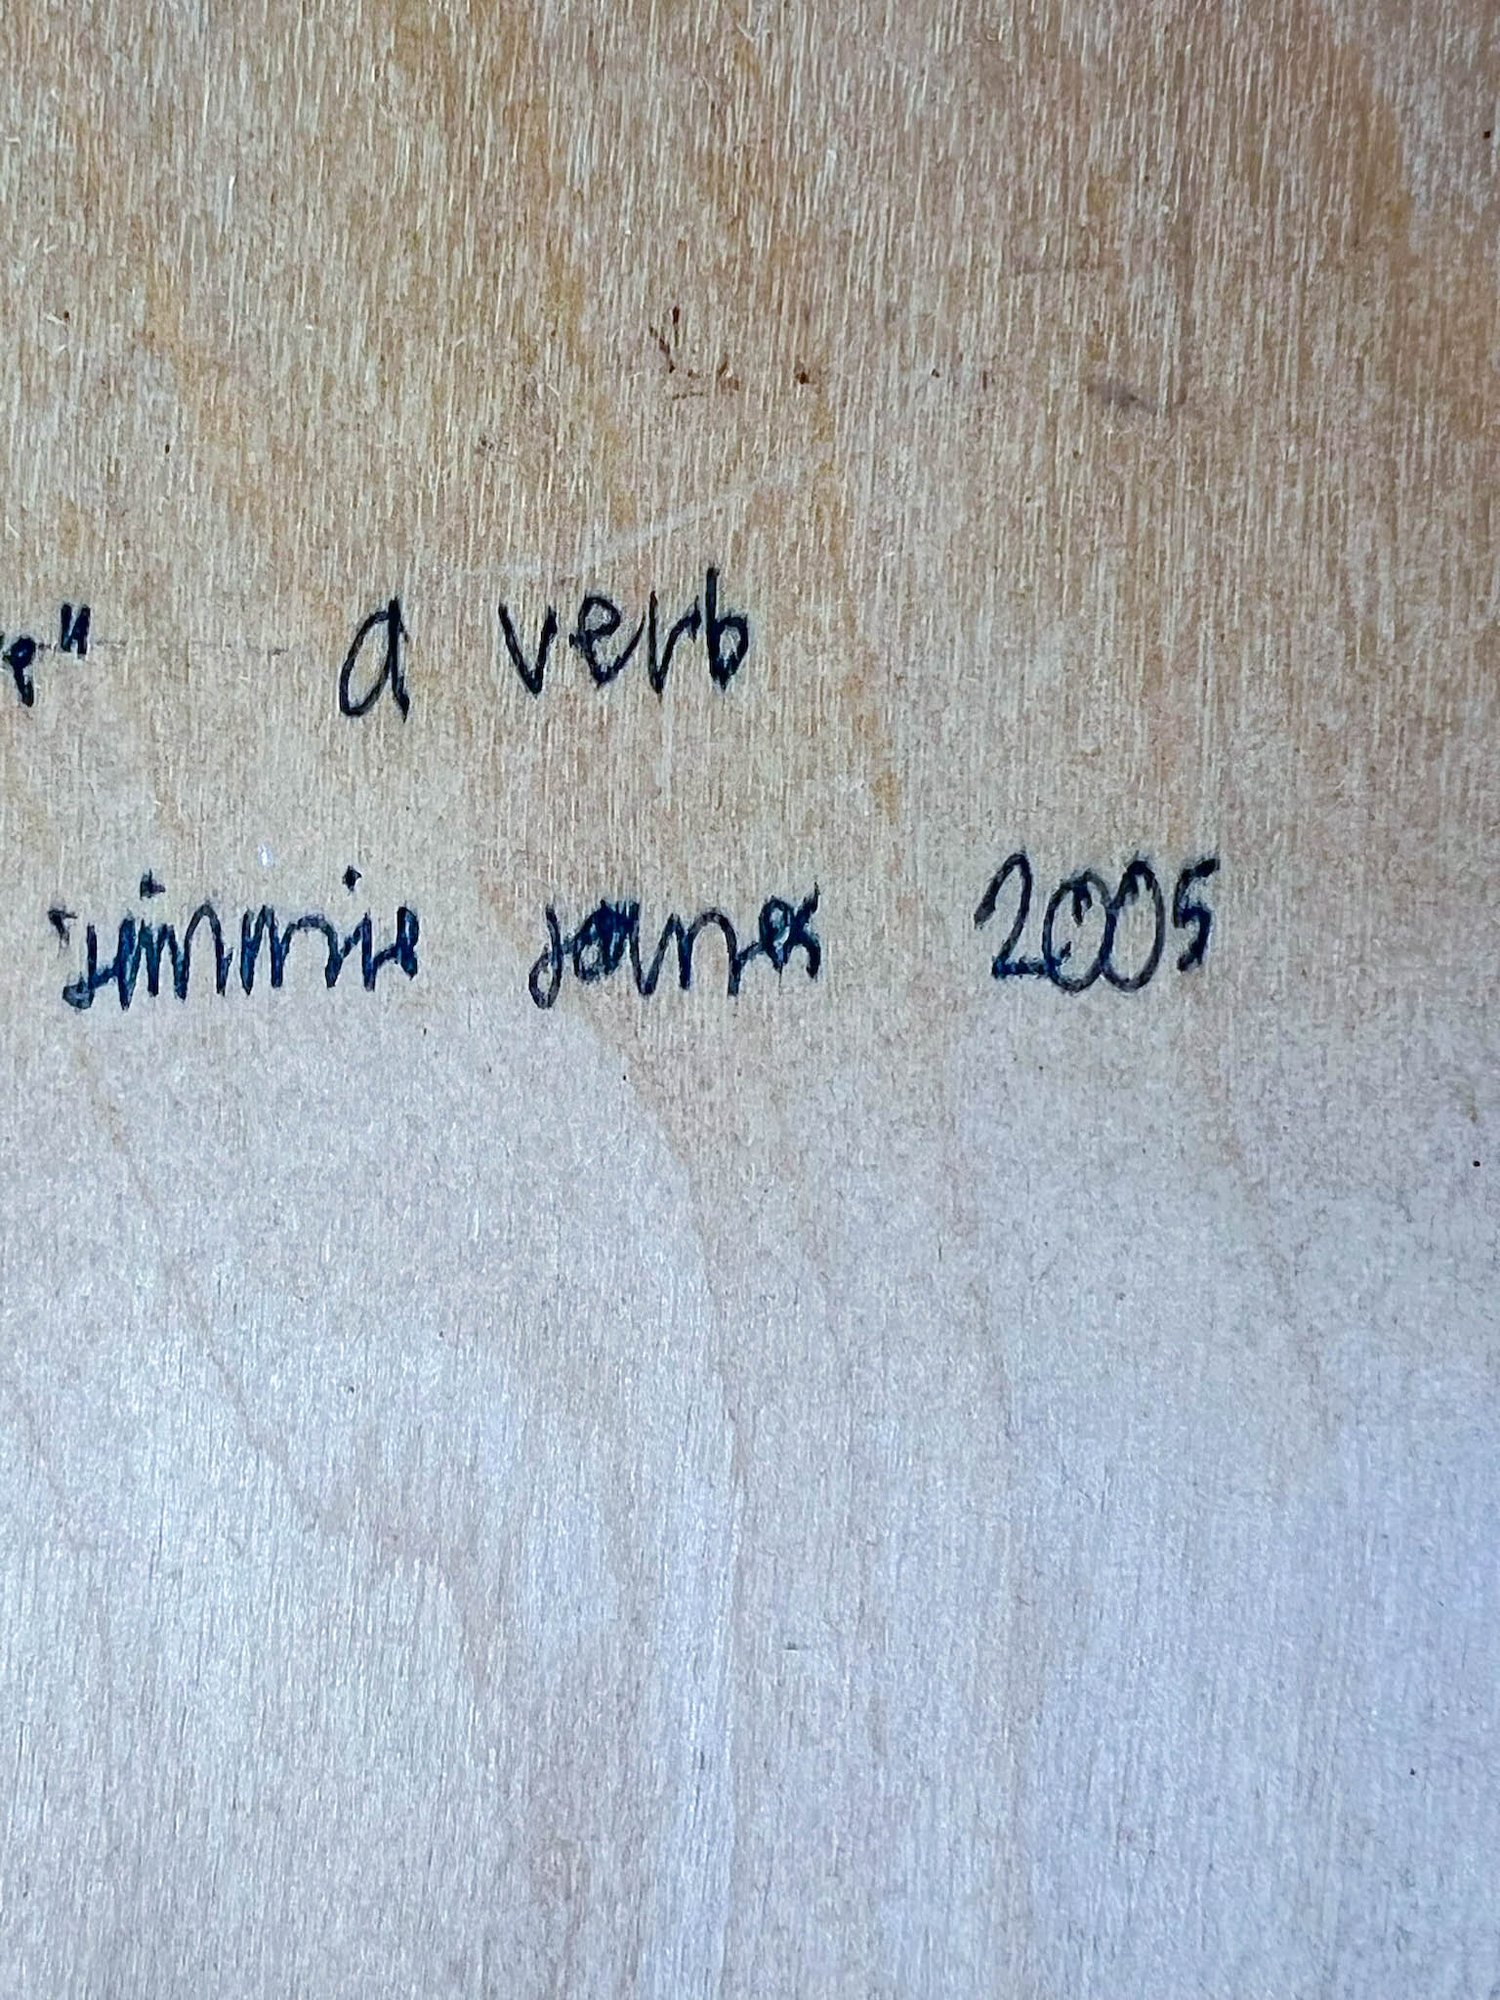 a verb
jimmie james 2005